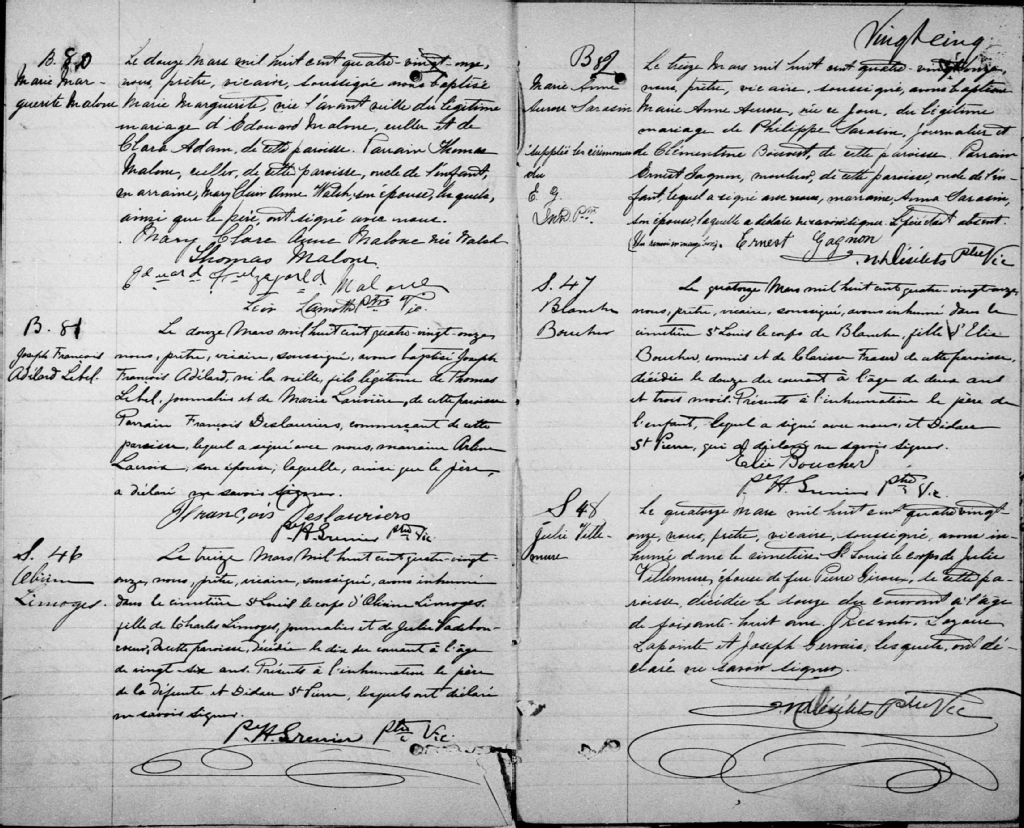 B. 80
Marie Mar-
guerite Malone
Le douze Mars mil huit cent quatre-vingt-onze,
nous, prêtre, vicaire, soussigné avons baptisé
Marie Marguerite, née l'avant veille du légitime
mariage d'Edouard Malone, culler et de
Clara Adam, de cette paroisse. Parrain Thomas
Malone, culler, de cette paroisse, oncle de l'enfant,
marraine, Mary Clair Anne Walsh, son épouse, lesquels,
ainsi que le père, ont signé avec nous.
Mary Clare Anne Malone née Walsh
Thomas Malone
Edward Fitzgerald Malone
Léon Lamothe Ptre Vic.
B. 81
Joseph François
Adélard Lebel.
Le douze Mars mil huit cent quatre-vingt-onze
nous, prêtre, vicaire, soussigné, avons baptisé Joseph
François Adélard, né la veille, fils légitime de Thomas
Lebel, journalier et de Marie Larivière, de cette paroisse
Parrain François Deslauriers, commerçant de cette
paroisse, lequel a signé avec nous, marraine
son épouse; laquelle, ainsi que le père,
a déclaré ne savoir signer.
François Deslauriers
P. H. Grenier ptre Vic.
S. 46
Limoges.
Le treize Mars mil huit cent quatre-vingt
onze, nous, prêtre, vicaire, soussigné, avons inhumé
dans le cimetière St Louis le corps d' Limoges.
fille de Charles Limoges, journalier et de Julie Vadebon-
coeur, de cette paroisse, décédée le dix du courant à l'âge
de vingt-six ans. Présents à l'inhumation le père
de la défunte, et Didace St Pierre, lesquels ont déclaré
ne savoir signer.
P. H. Grenier ptre Vic.
Vingt cinq
B 82
Marie Anne
Aurore Sarasin
supplée les cérémonies
du
E. G.
Ptre
Le treize Mars mil huit cent quatre-vingt onze,
nous, prêtre, vicaire, soussigné, avons baptisé
Marie Anne Aurore, née ce jour, du légitime
mariage de Philippe Sarasin, journalier et
de Clémentine de cette paroisse. Parrain
Ernest Gagnon, mouleur, de cette paroisse, oncle de l'en-
fant, lequel a signé avec nous, marraine Anna Sarasin,
son épouse, laquelle a déclaré ne savoir signer. Le père était absent.
(Un renvoi en marge bon). Ernest Gagnon
Ptre Vic
S. 47
Blanche
Boucher
Le quatorze Mars mil huit cent quatre-vingt-onze
nous, prêtre, vicaire, soussigné, avons inhumé dans le
cimetière St Louis le corps de Blanche, fille d'Elie
Boucher, commis et de Clarisse Fraser de cette paroisse,
décédée le douze du courant à l'âge de deux ans
et trois mois. Présents à l'inhumation le père de
l'enfant, lequel a signé avec nous, et Didace
St Pierre, qui a déclaré ne savoir signer.
Elie Boucher
P. H. Grenier ptre Vic.
S 48
Julie Ville-
mure
Le quatorze Mars mil huit cent quatre vingt
onze, nous, prêtre, vicaire, soussigné, avons in-
humé dans le cimetière St Louis le corps de Julie
Villemure, épouse de feu Pierre Giroux, de cette pa-
roisse, décédée le douze du courant à l'âge
de soixante-huit ans. Présents, Lazare
Lapointe et Joseph Gervais, lesquels, ont dé-
claré ne savoir signer.
Ptre Vic